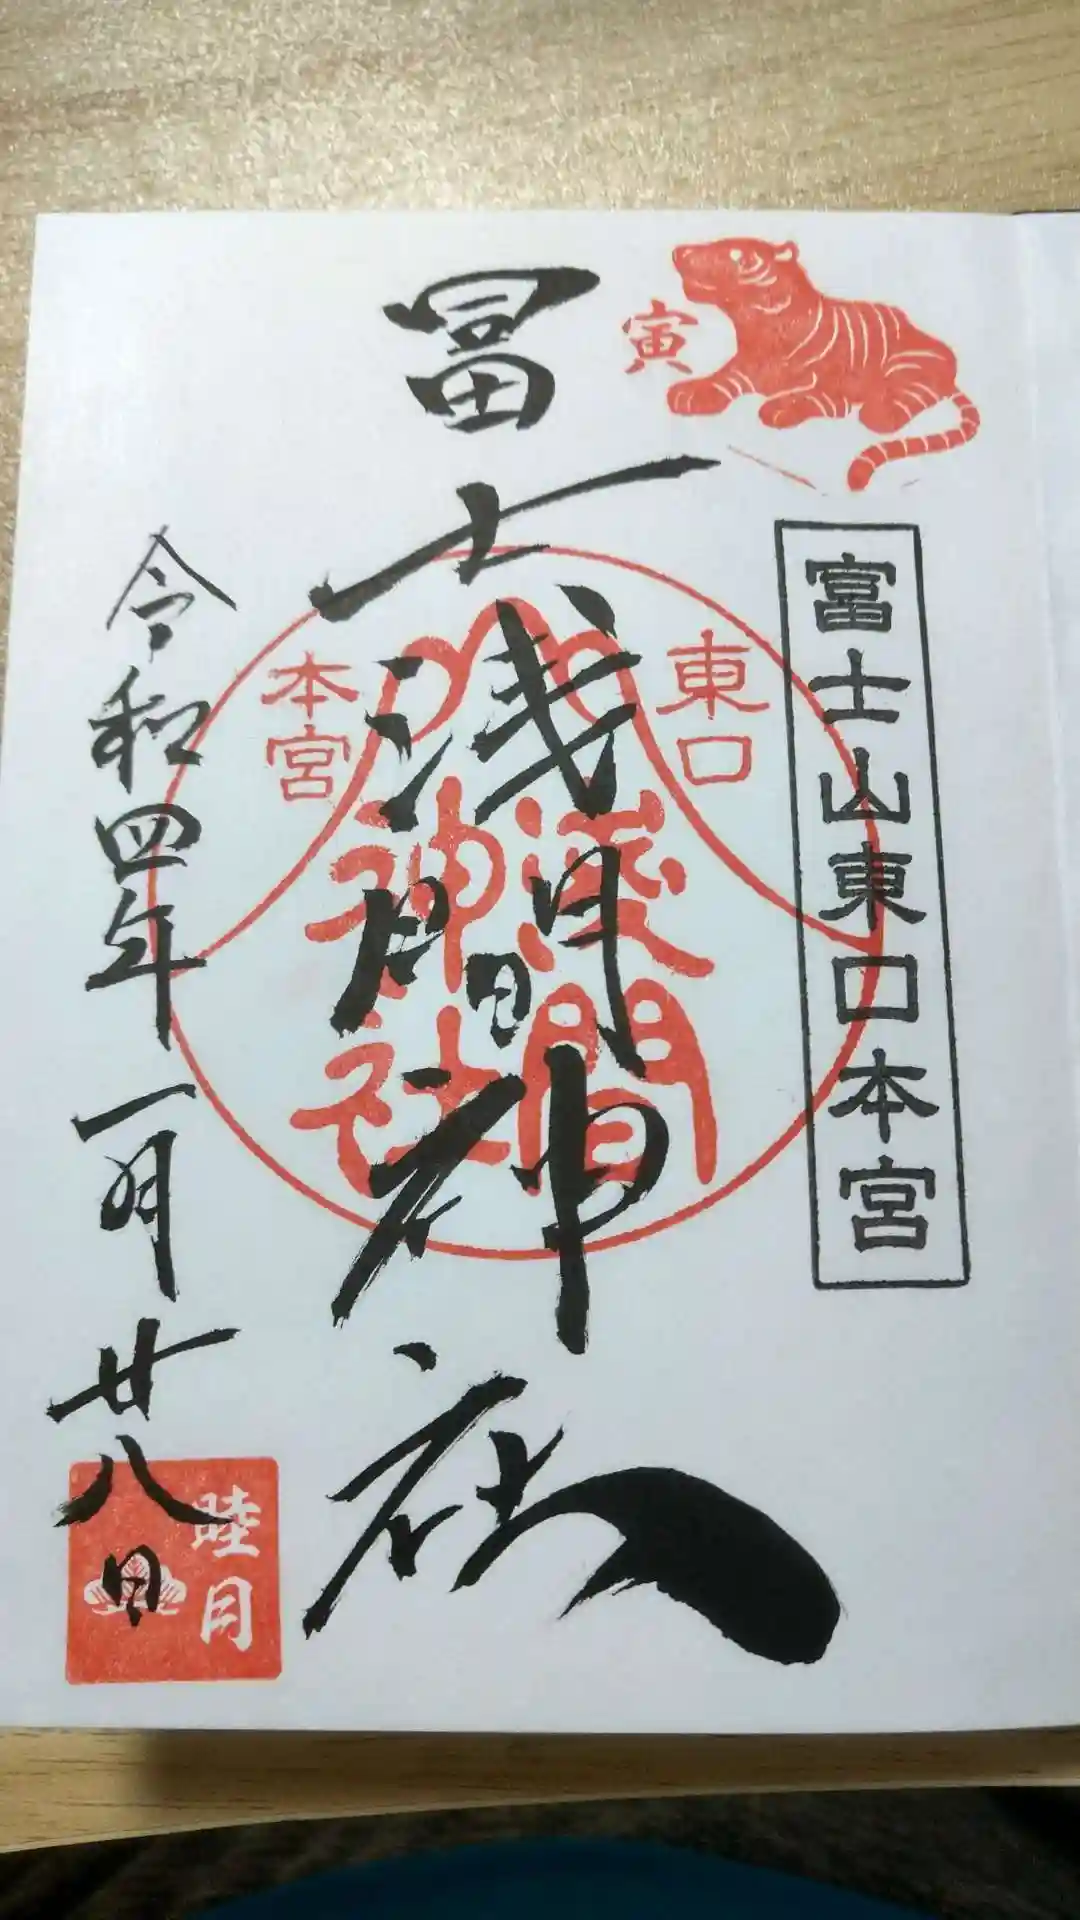 寅
富士山東口本宮
冨士浅間神社
東口
本宮
淺間
神社
令和四年一月廿八日
睦月